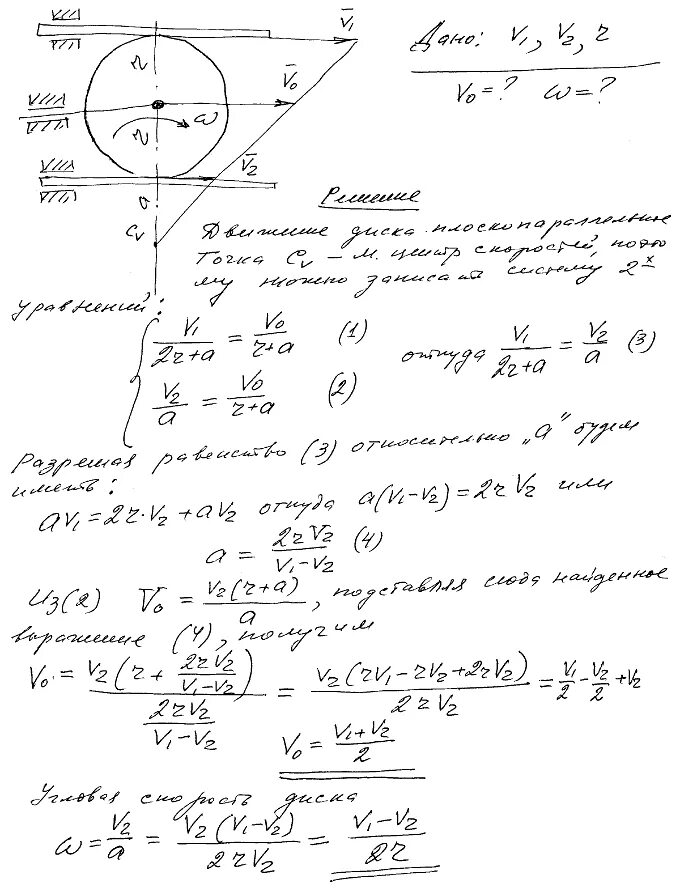 V̄₁
Дано: V₁, V₂, r
r
V̄₀
V₀ = ? ω = ?
ω
r
V̄₂
a
Cv
Решение
Движение диска плоскопараллельное
Точка Cv – м. центр скоростей, поэто
му можно записать систему 2ˣ
уравнений:
V₁/(2r+a) = V₀/(r+a) (1)
откуда V₁/(2r+a) = V₂/a (3)
V₂/a = V₀/(r+a) (2)
Разрешая равенство (3) относительно „a" будем
иметь:
aV₁ = 2r·V₂ + aV₂ откуда a(V₁-V₂) = 2rV₂ или
a = 2rV₂/(V₁-V₂) (4)
Из (2) V₀ = V₂(r+a)/a, подставляя сюда найденное
выражение (4), получим
V₀ = V₂(r + 2rV₂/(V₁-V₂)) / (2rV₂/(V₁-V₂)) = V₂(rV₁-rV₂+2rV₂)/(2rV₂) = V₁/2 - V₂/2 + V₂
V₀ = (V₁+V₂)/2
Угловая скорость диска
ω = V₂/a = V₂(V₁-V₂)/(2rV₂) = (V₁-V₂)/(2r)